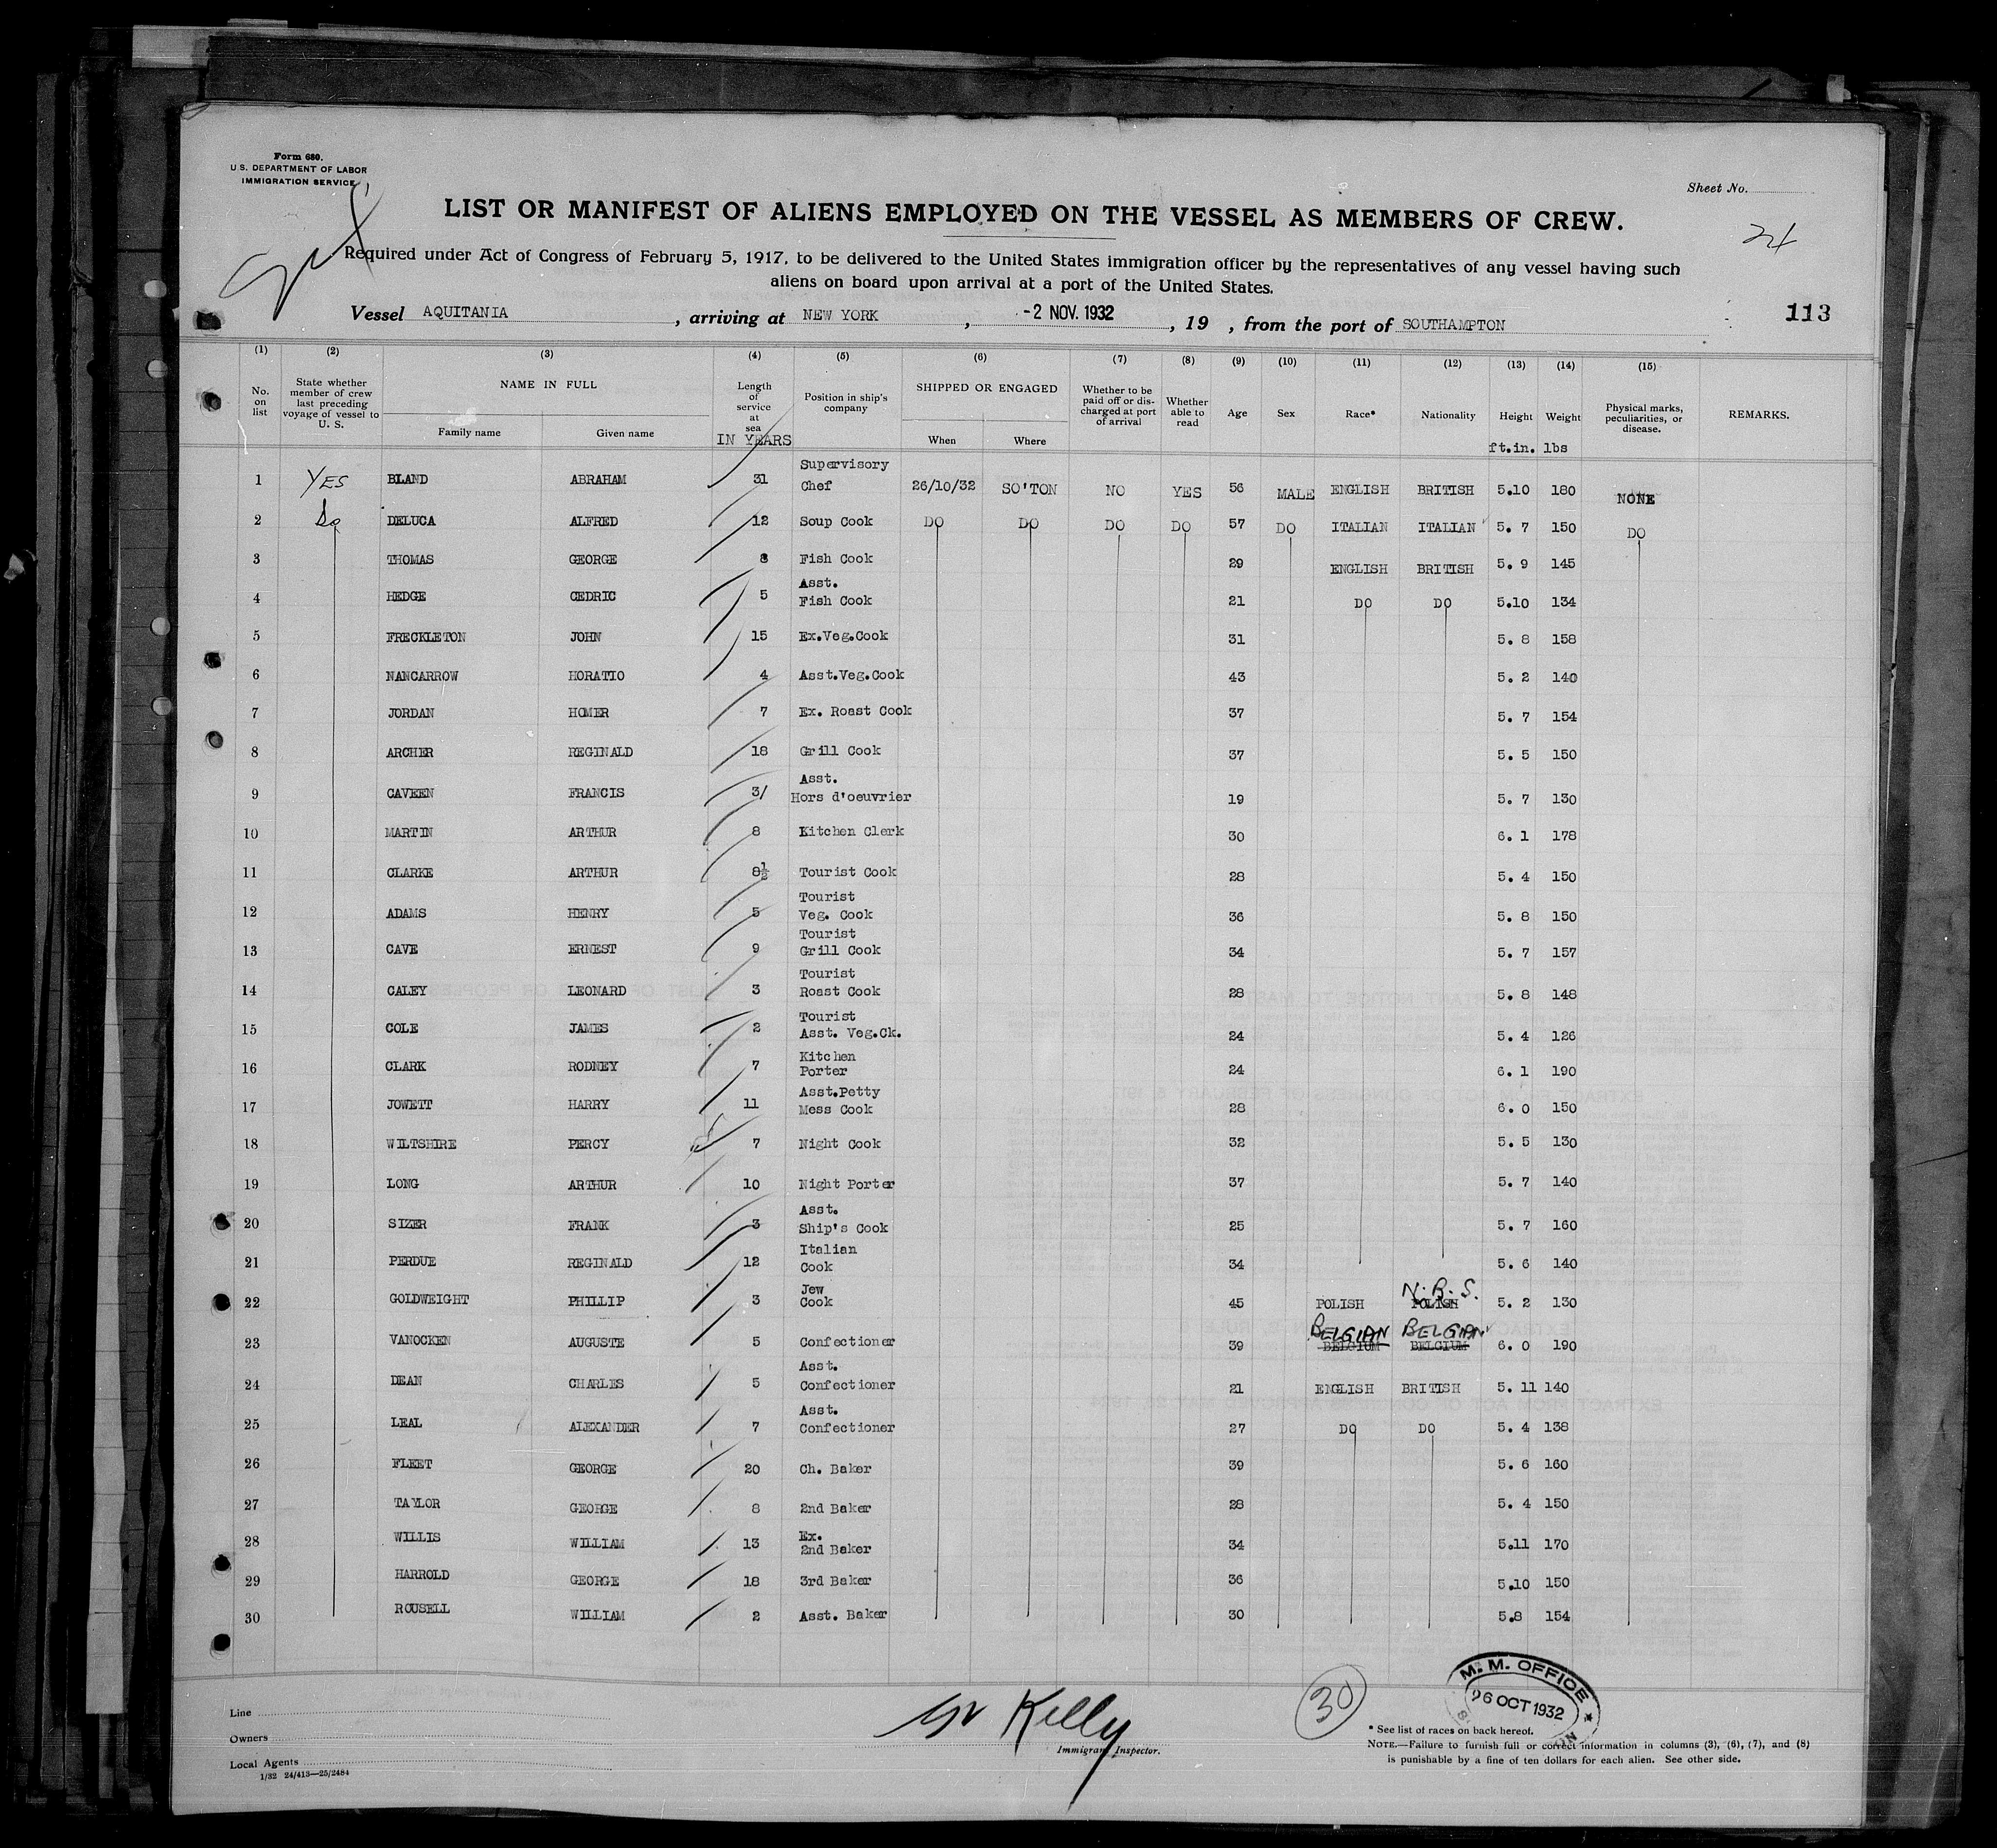 Form 680.
U.S. DEPARTMENT OF LABOR
IMMIGRATION SERVICE
Sheet No.
LIST OR MANIFEST OF ALIENS EMPLOYED ON THE VESSEL AS MEMBERS OF CREW.
24
Required under Act of Congress of February 5, 1917, to be delivered to the United States immigration officer by the representatives of any vessel having such
aliens on board upon arrival at a port of the United States.
Vessel AQUITANIA, arriving at NEW YORK, -2 NOV. 1932, 19 , from the port of SOUTHAMPTON
113
(1) (2) (3) (4) (5) (6) (7) (8) (9) (10) (11) (12) (13) (14) (15)
No. on list State whether member of crew last preceding voyage of vessel to U. S. NAME IN FULL Family name Given name Length of service at sea IN YEARS Position in ship's company SHIPPED OR ENGAGED When Where Whether to be paid off or discharged at port of arrival Whether able to read Age Sex Race* Nationality Height Weight Physical marks, peculiarities, or disease. REMARKS.
ft.in. lbs
1 YES BLAND ABRAHAM 31 Supervisory Chef 26/10/32 SO'TON NO YES 56 MALE ENGLISH BRITISH 5.10 180 NONE
2 Do DELUCA ALFRED 12 Soup Cook DO DO DO DO 57 DO ITALIAN ITALIAN 5. 7 150 DO
3 THOMAS GEORGE 8 Fish Cook 29 ENGLISH BRITISH 5. 9 145
4 HEDGE CEDRIC 5 Asst. Fish Cook 21 DO DO 5.10 134
5 FRECKLETON JOHN 15 Ex.Veg.Cook 31 5. 8 158
6 NANCARROW HORATIO 4 Asst.Veg.Cook 43 5. 2 140
7 JORDAN HOMER 7 Ex. Roast Cook 37 5. 7 154
8 ARCHER REGINALD 18 Grill Cook 37 5. 5 150
9 CAVEEN FRANCIS 3/ Asst. Hors d'oeuvrier 19 5. 7 130
10 MARTIN ARTHUR 8 Kitchen Clerk 30 6. 1 178
11 CLARKE ARTHUR 8½ Tourist Cook 28 5. 4 150
12 ADAMS HENRY 5 Tourist Veg. Cook 36 5. 8 150
13 CAVE ERNEST 9 Tourist Grill Cook 34 5. 7 157
14 CALEY LEONARD 3 Tourist Roast Cook 28 5. 8 148
15 COLE JAMES 2 Tourist Asst. Veg.Ck. 24 5. 4 126
16 CLARK RODNEY 7 Kitchen Porter 24 6. 1 190
17 JOWETT HARRY 11 Asst.Petty Mess Cook 28 6. 0 150
18 WILTSHIRE PERCY 7 Night Cook 32 5. 5 130
19 LONG ARTHUR 10 Night Porter 37 5. 7 140
20 SIZER FRANK 3 Asst. Ship's Cook 25 5. 7 160
21 PERDUE REGINALD 12 Italian Cook 34 5. 6 140
22 GOLDWEIGHT PHILLIP 3 Jew Cook 45 POLISH N.B.S. POLISH 5. 2 130
23 VANOCKEN AUGUSTE 5 Confectioner 39 BELGIAN BELGIUM BELGIAN BELGIUM 6. 0 190
24 DEAN CHARLES 5 Asst. Confectioner 21 ENGLISH BRITISH 5. 11 140
25 LEAL ALEXANDER 7 Asst. Confectioner 27 DO DO 5. 4 138
26 FLEET GEORGE 20 Ch. Baker 39 5. 6 160
27 TAYLOR GEORGE 8 2nd Baker 28 5. 4 150
28 WILLIS WILLIAM 13 Ex. 2nd Baker 34 5.11 170
29 HARROLD GEORGE 18 3rd Baker 36 5.10 150
30 ROUSELL WILLIAM 2 Asst. Baker 30 5.8 154
Line
Owners
Local Agents
1/32 24/413—25/2484
Kelly
Immigrant Inspector.
30
M. M. OFFICE
26 OCT 1932
* See list of races on back hereof.
NOTE.—Failure to furnish full or correct information in columns (3), (6), (7), and (8)
is punishable by a fine of ten dollars for each alien. See other side.